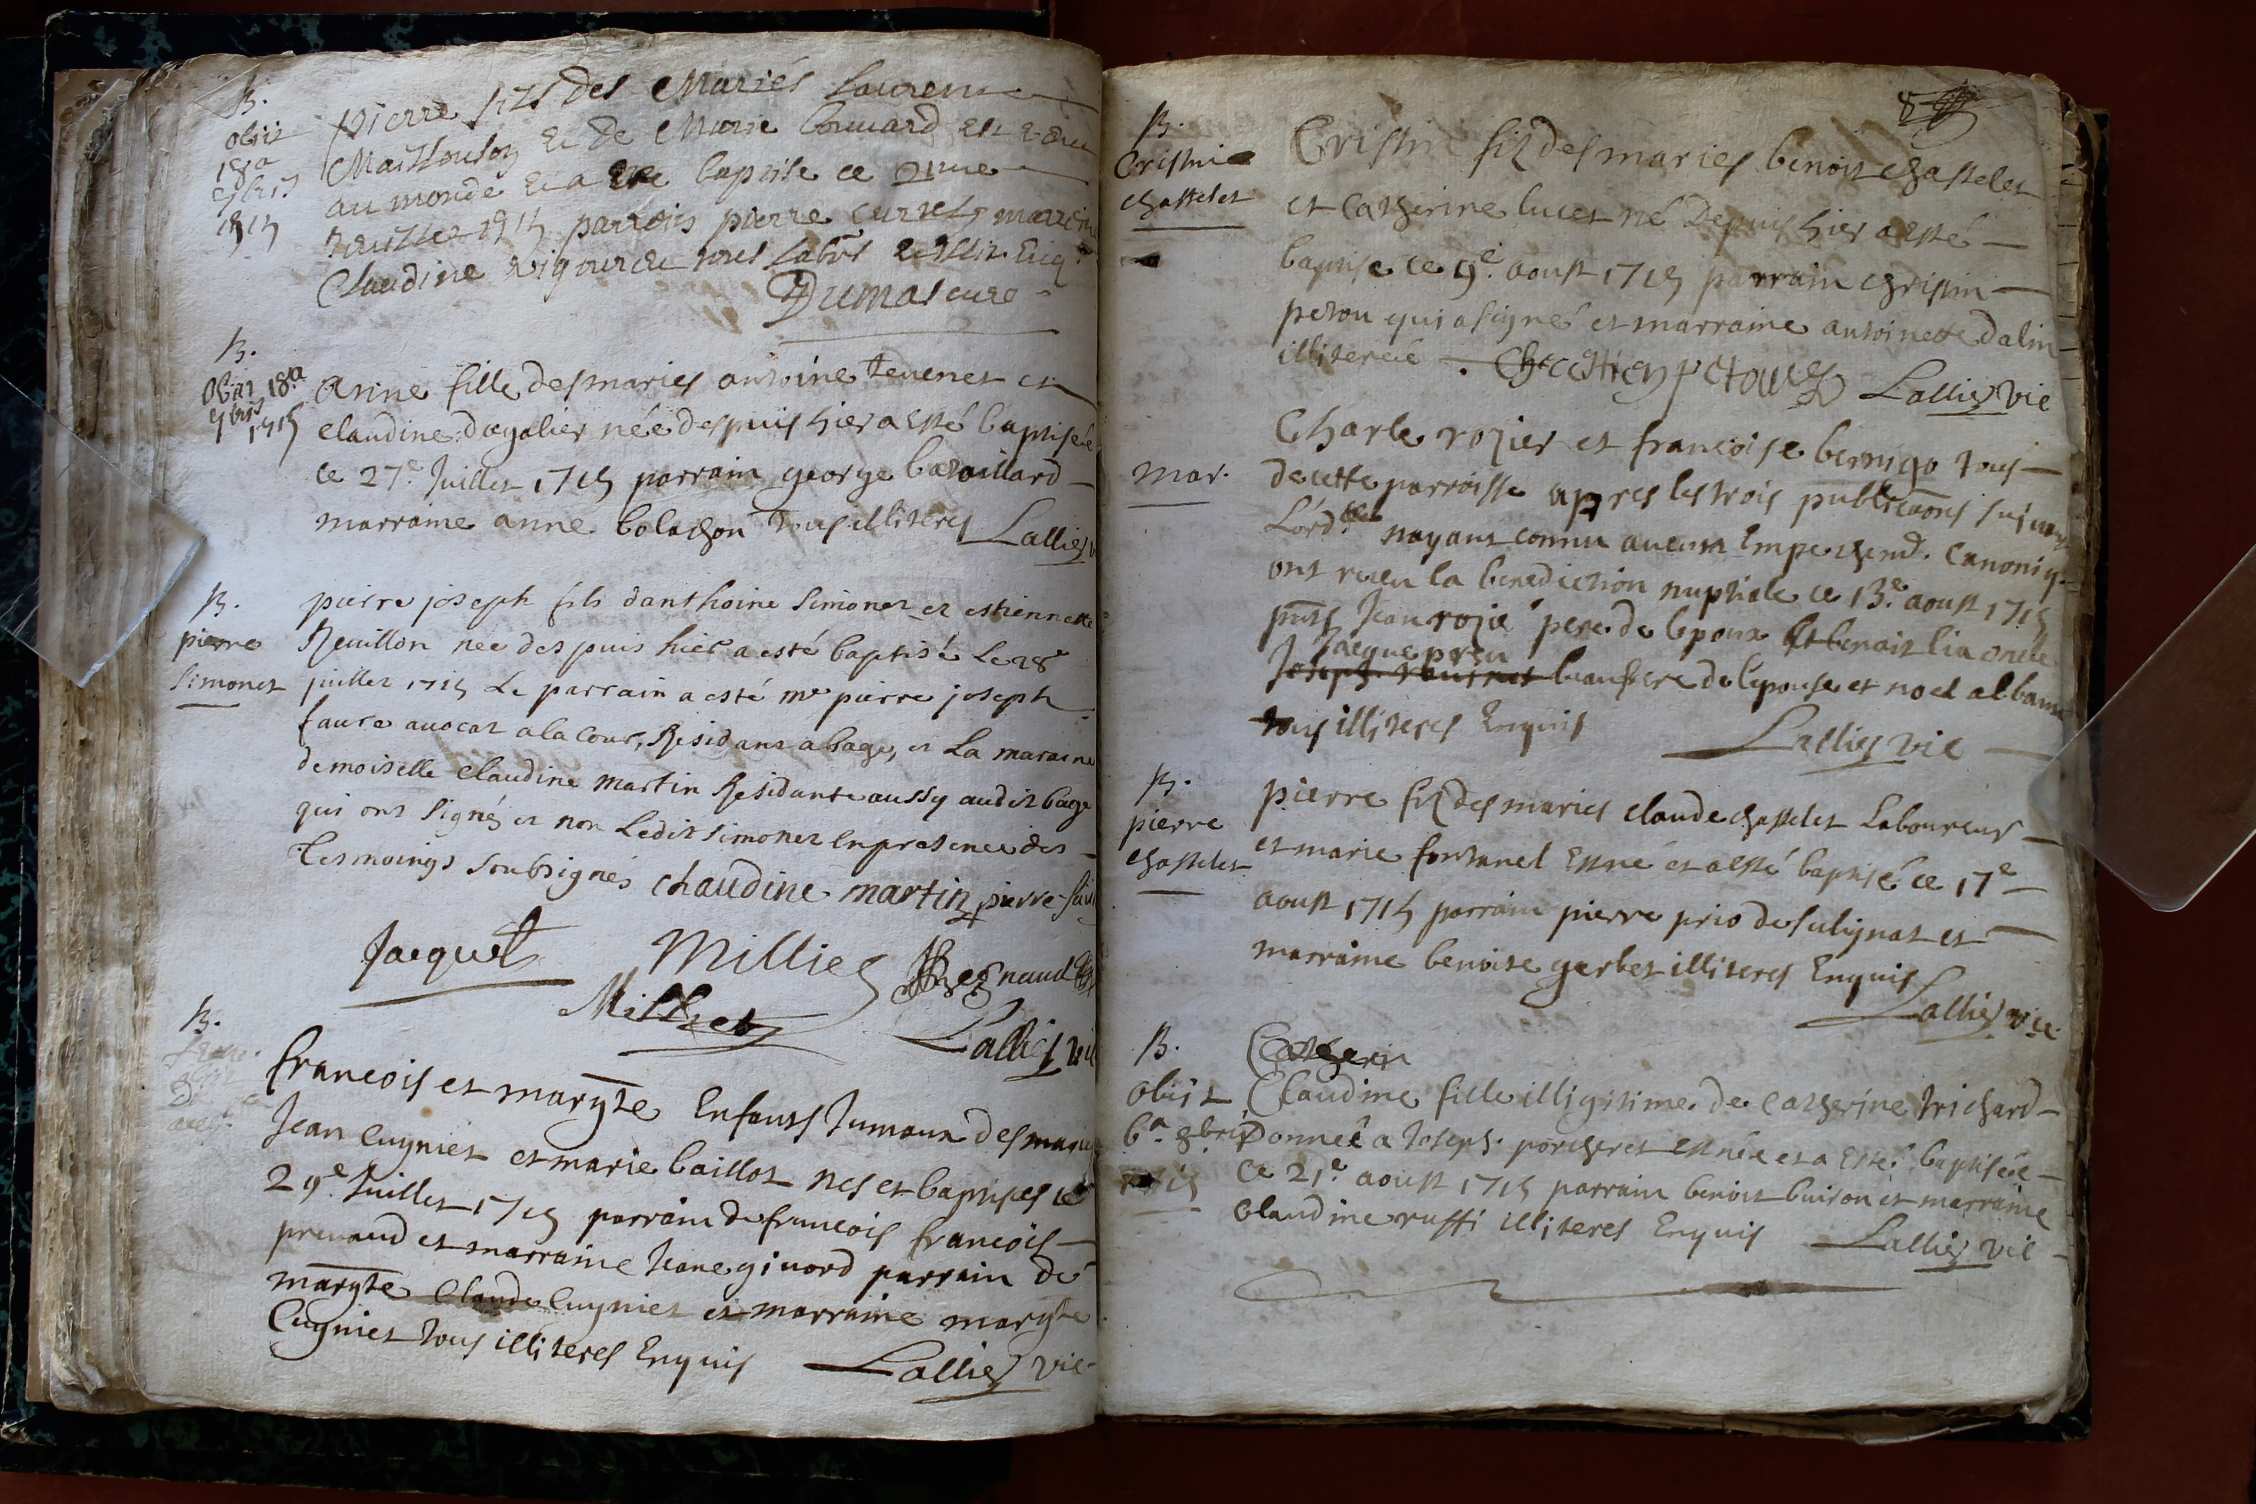 B.
obiit
18a
9bris
1715
pierre fils des Mariés Laurent
et de Marie Bouuard est venu
au monde et a este baptise ce 21me
Juillet 1715 parrois pierre marreine
Claudine tous labrs et illit. enq.
Dumas cure
B.
Obiit 18a
9bris
1715
Anne fille des maries antoine tevenet et
claudine dagalier née despuis hier a esté baptisée
ce 27e Juillet 1715 parrain george bataillard
marraine anne bolachon tous illiteres Lallier
B.
pierre
Simonet
pierre joseph fils danthoine Simonet et estiennette
Reuillon née despuis hier a esté baptisé Le 28e
juillet 1715 Le parrain a esté me pierre joseph
faure auocat a la Cour, Residant a bage, et La maraine
demoiselle Claudine martin Residante aussy audit bage
qui ont Signés et non Ledit Simonet en presence des
tesmoings soubsignés chaudine martin pierre
Jacquet Millier Regnaud
Milliet Lallier vic
B.
francois et margte Enfants Jumaux des maries
Jean Cugniet et marie baillot nes et baptises ce
29e Juillet 1715 parrain de francois francois
preuaud et marraine Jeane giuord parrain de
margte Claude Cugniet et marraine margte
Cugniet tous illiteres Enquis Lallier vic
8
B.
Cristin
chastelet
Cristin filz des maries benoit chastelet
et Catherine lucet né Depuis hier a esté
baptise ce 9e aoust 1715 parrain christin
petou qui a signé et marraine antoinette dalin
illiteree . Lallier vic
mar.
Charle rozier et francoise bernigo tous
de cette parroisse apres les trois publications suiuant
Lord.ce nayant connu aucun Empechemt. Canoniq.
ont receu la benediction nuptiale ce 13e aoust 1715
pnts Jean rozié pere de lepoux et benoit lia oncle
Jacque preu
Joseph beaufrere de lepouse et noel alban
tous illiteres Enquis Lallier vic
B.
pierre
chastelet
pierre filz des maries claude chastelet Laboureur
et marie fontanel Est né et a esté baptisé ce 17e
aoust 1715 parrain pierre prio de sulignat et
marraine benoite gerbet illiteres Enquis
Lallier vic.
B.
obiit
6a 8bris
1715
Catherin
Claudine fille illigitime de Catherine trichard
Donnée a Joseph porcheret est née et a esté baptisée
ce 21e aoust 1715 parrain benoit buiron et marraine
claudine ruffi illiteres Enquis Lallier vic